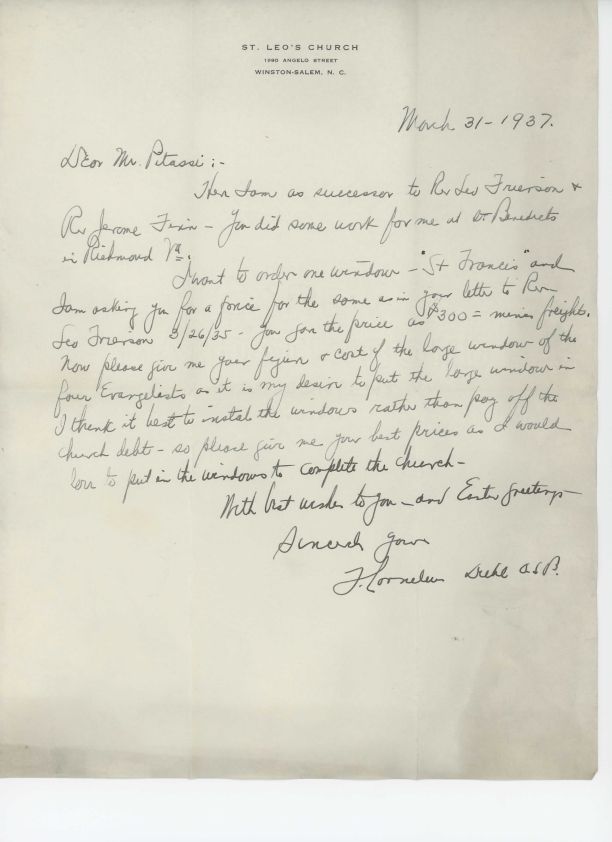 ST. LEO'S CHURCH
1990 ANGELO STREET
WINSTON-SALEM, N. C.
March 31-1937.
Dear Mr. Pitassi:-
Here I am as successor to Rev Leo Frierson &
Rev Jerome Finn - You did some work for me at St Benedicts
in Richmond Va.
I want to order one window - "St Francis" and
I am asking you for a price for the same as in your letter to Rev
Leo Frierson 3/26/35 - You gave the price as $300= minus freight.
Now please give me your figure & cost of the large window of the
four Evangelists as it is my desire to put the large window in
I think it best to instal the windows rather than pay off the
church debt - so please give me your best prices as I would
love to put in the windows to complete the church -
With best wishes to you - and Easter greetings
Sincerely yours
F. Cornelius Diehl O.S.B.